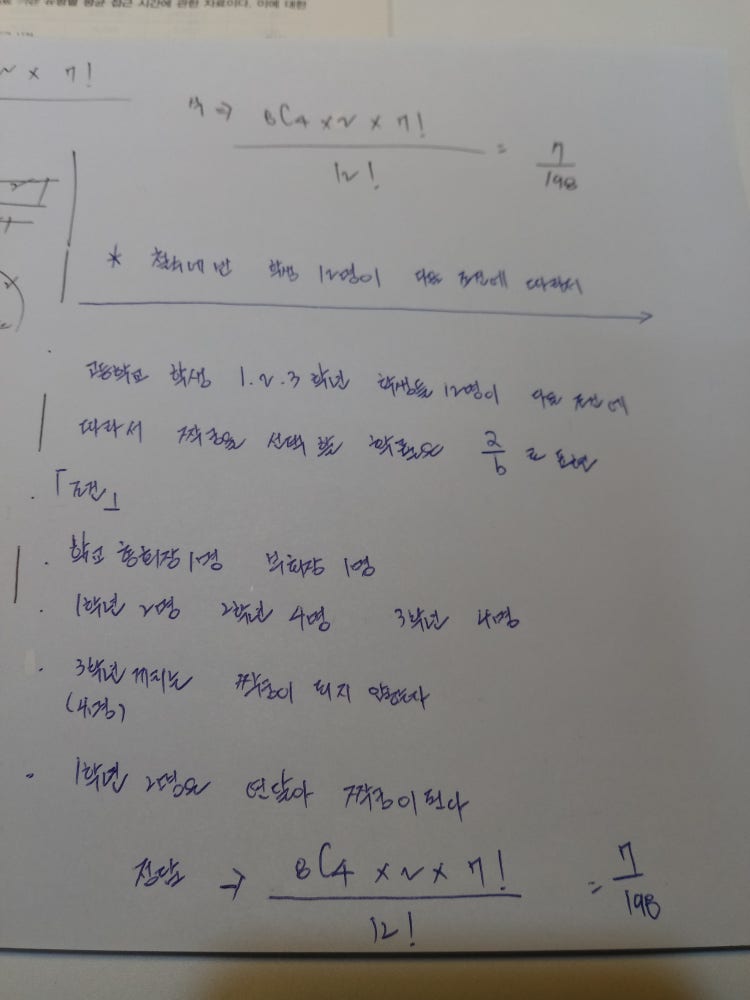 유형별 평균 접근 시간에 관한 자료이다. 이에 대한
× 7!
⇒ 8C4 × 2 × 7! / 12! = 7/198
* 철수네 반 학생 12명이 다음 조건에 따라서
고등학교 학생 1. 2. 3 학년 학생들 12명이 다음 조건에
따라서 짝궁을 선택할 확률은 a/b 로 표현
「조건」
· 학교 총회장 1명 부회장 1명
· 1학년 2명 2학년 4명 3학년 4명
· 3학년끼리는 짝궁이 되지 않는다
(4명)
· 1학년 2명은 연달아 짝궁이 된다
정답 → 8C4 × 2 × 7! / 12! = 7/198